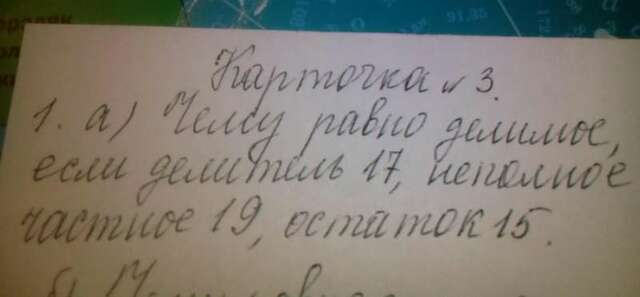 Карточка №3.
1. а) Чему равно делимое,
если делитель 17, неполное
частное 19, остаток 15.
б)
91,85